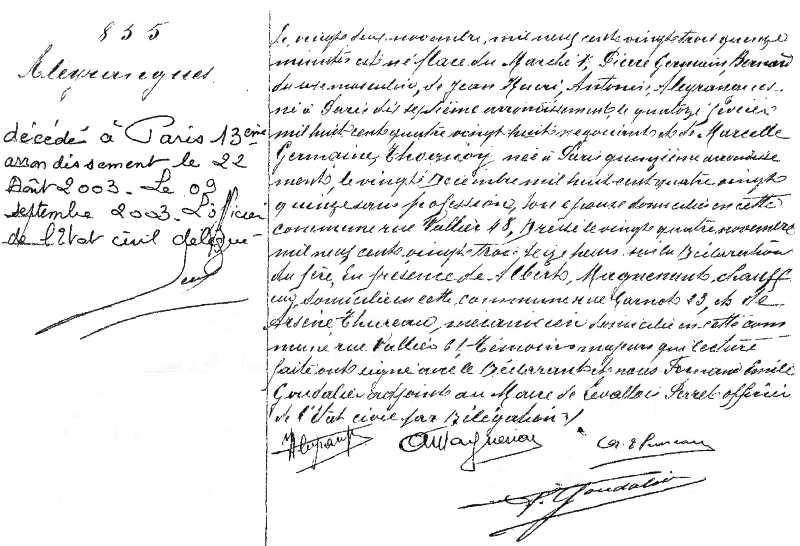 855
Aleyrangues
décédé à Paris 13ème
arrondissement le 22
Août 2003. Le 09
septembre 2003. L'officier
de l'Etat civil délégué
Le vingt deux novembre, mil neuf cent vingt trois quinze
minutes est né place du Marché Pierre Germain, Bernard
du sexe masculin, de Jean Henri, Antonin, Aleyrangues
né à Paris dix septième arrondissement, le quatorze février
mil huit cent quatre vingt huit négociant et de Marcelle
Germaine, née à Paris quinzième arrondisse
ment, le vingt Décembre mil huit cent quatre vingt
quinze sans profession, son épouse domiciliés en cette
commune rue Vallier 48, Dressé le vingt quatre novembre
mil neuf cent vingt trois, seize heures sur la Déclaration
du père, En présence de Albert, Magnenant, chauff
eur, domicilié en cette commune rue Carnot 23, et de
Arsène Thureau, mécanicien domicilié en cette com
mune rue Vallier témoins majeurs qui lecture
faite ont signé avec le Déclarant et nous Fernand Emile
Goudalier adjoint au Maire de Levallois Perret officier
de l'Etat civil par Délégation
F. Goudalier